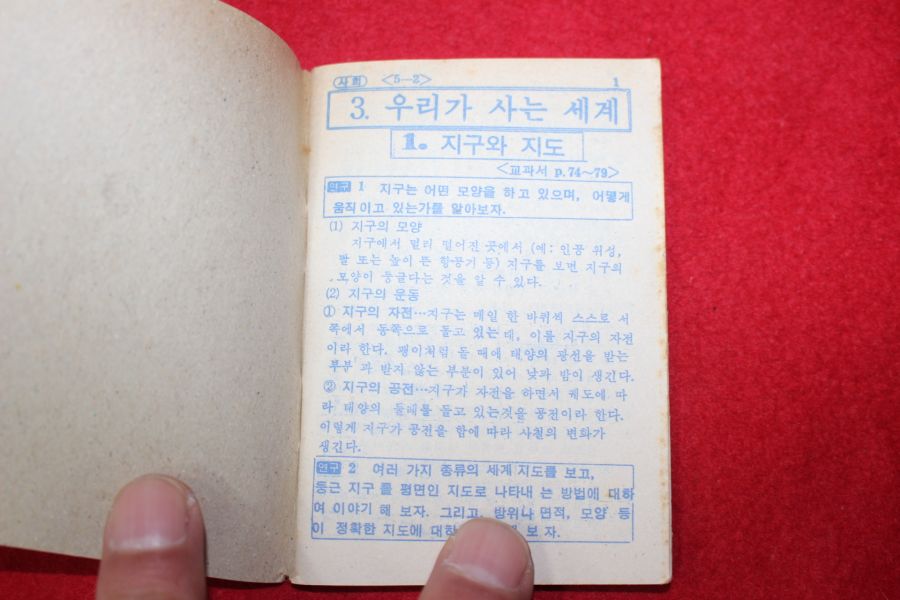 사회 <5—2> 1
3. 우리가 사는 세계
1. 지구와 지도
<교과서 p.74~79>
연구 1 지구는 어떤 모양을 하고 있으며, 어떻게
움직이고 있는가를 알아보자.
(1) 지구의 모양
지구에서 멀리 떨어진 곳에서 (예: 인공 위성,
달 또는 높이 뜬 항공기 등) 지구를 보면 지구의
모양이 둥글다는 것을 알 수 있다.
(2) 지구의 운동
① 지구의 자전…지구는 매일 한 바퀴씩 스스로 서
쪽에서 동쪽으로 돌고 있는데, 이를 지구의 자전
이라 한다. 팽이처럼 돌 때에 태양의 광선을 받는
부분과 받지 않는 부분이 있어 낮과 밤이 생긴다.
② 지구의 공전…지구가 자전을 하면서 궤도에 따
라 태양의 둘레를 돌고 있는것을 공전이라 한다.
이렇게 지구가 공전을 함에 따라 사철의 변화가
생긴다.
연구 2 여러 가지 종류의 세계 지도를 보고,
둥근 지구를 평면인 지도로 나타내는 방법에 대하
여 이야기 해 보자. 그리고, 방위나 면적, 모양 등
이 정확한 지도에 보자.